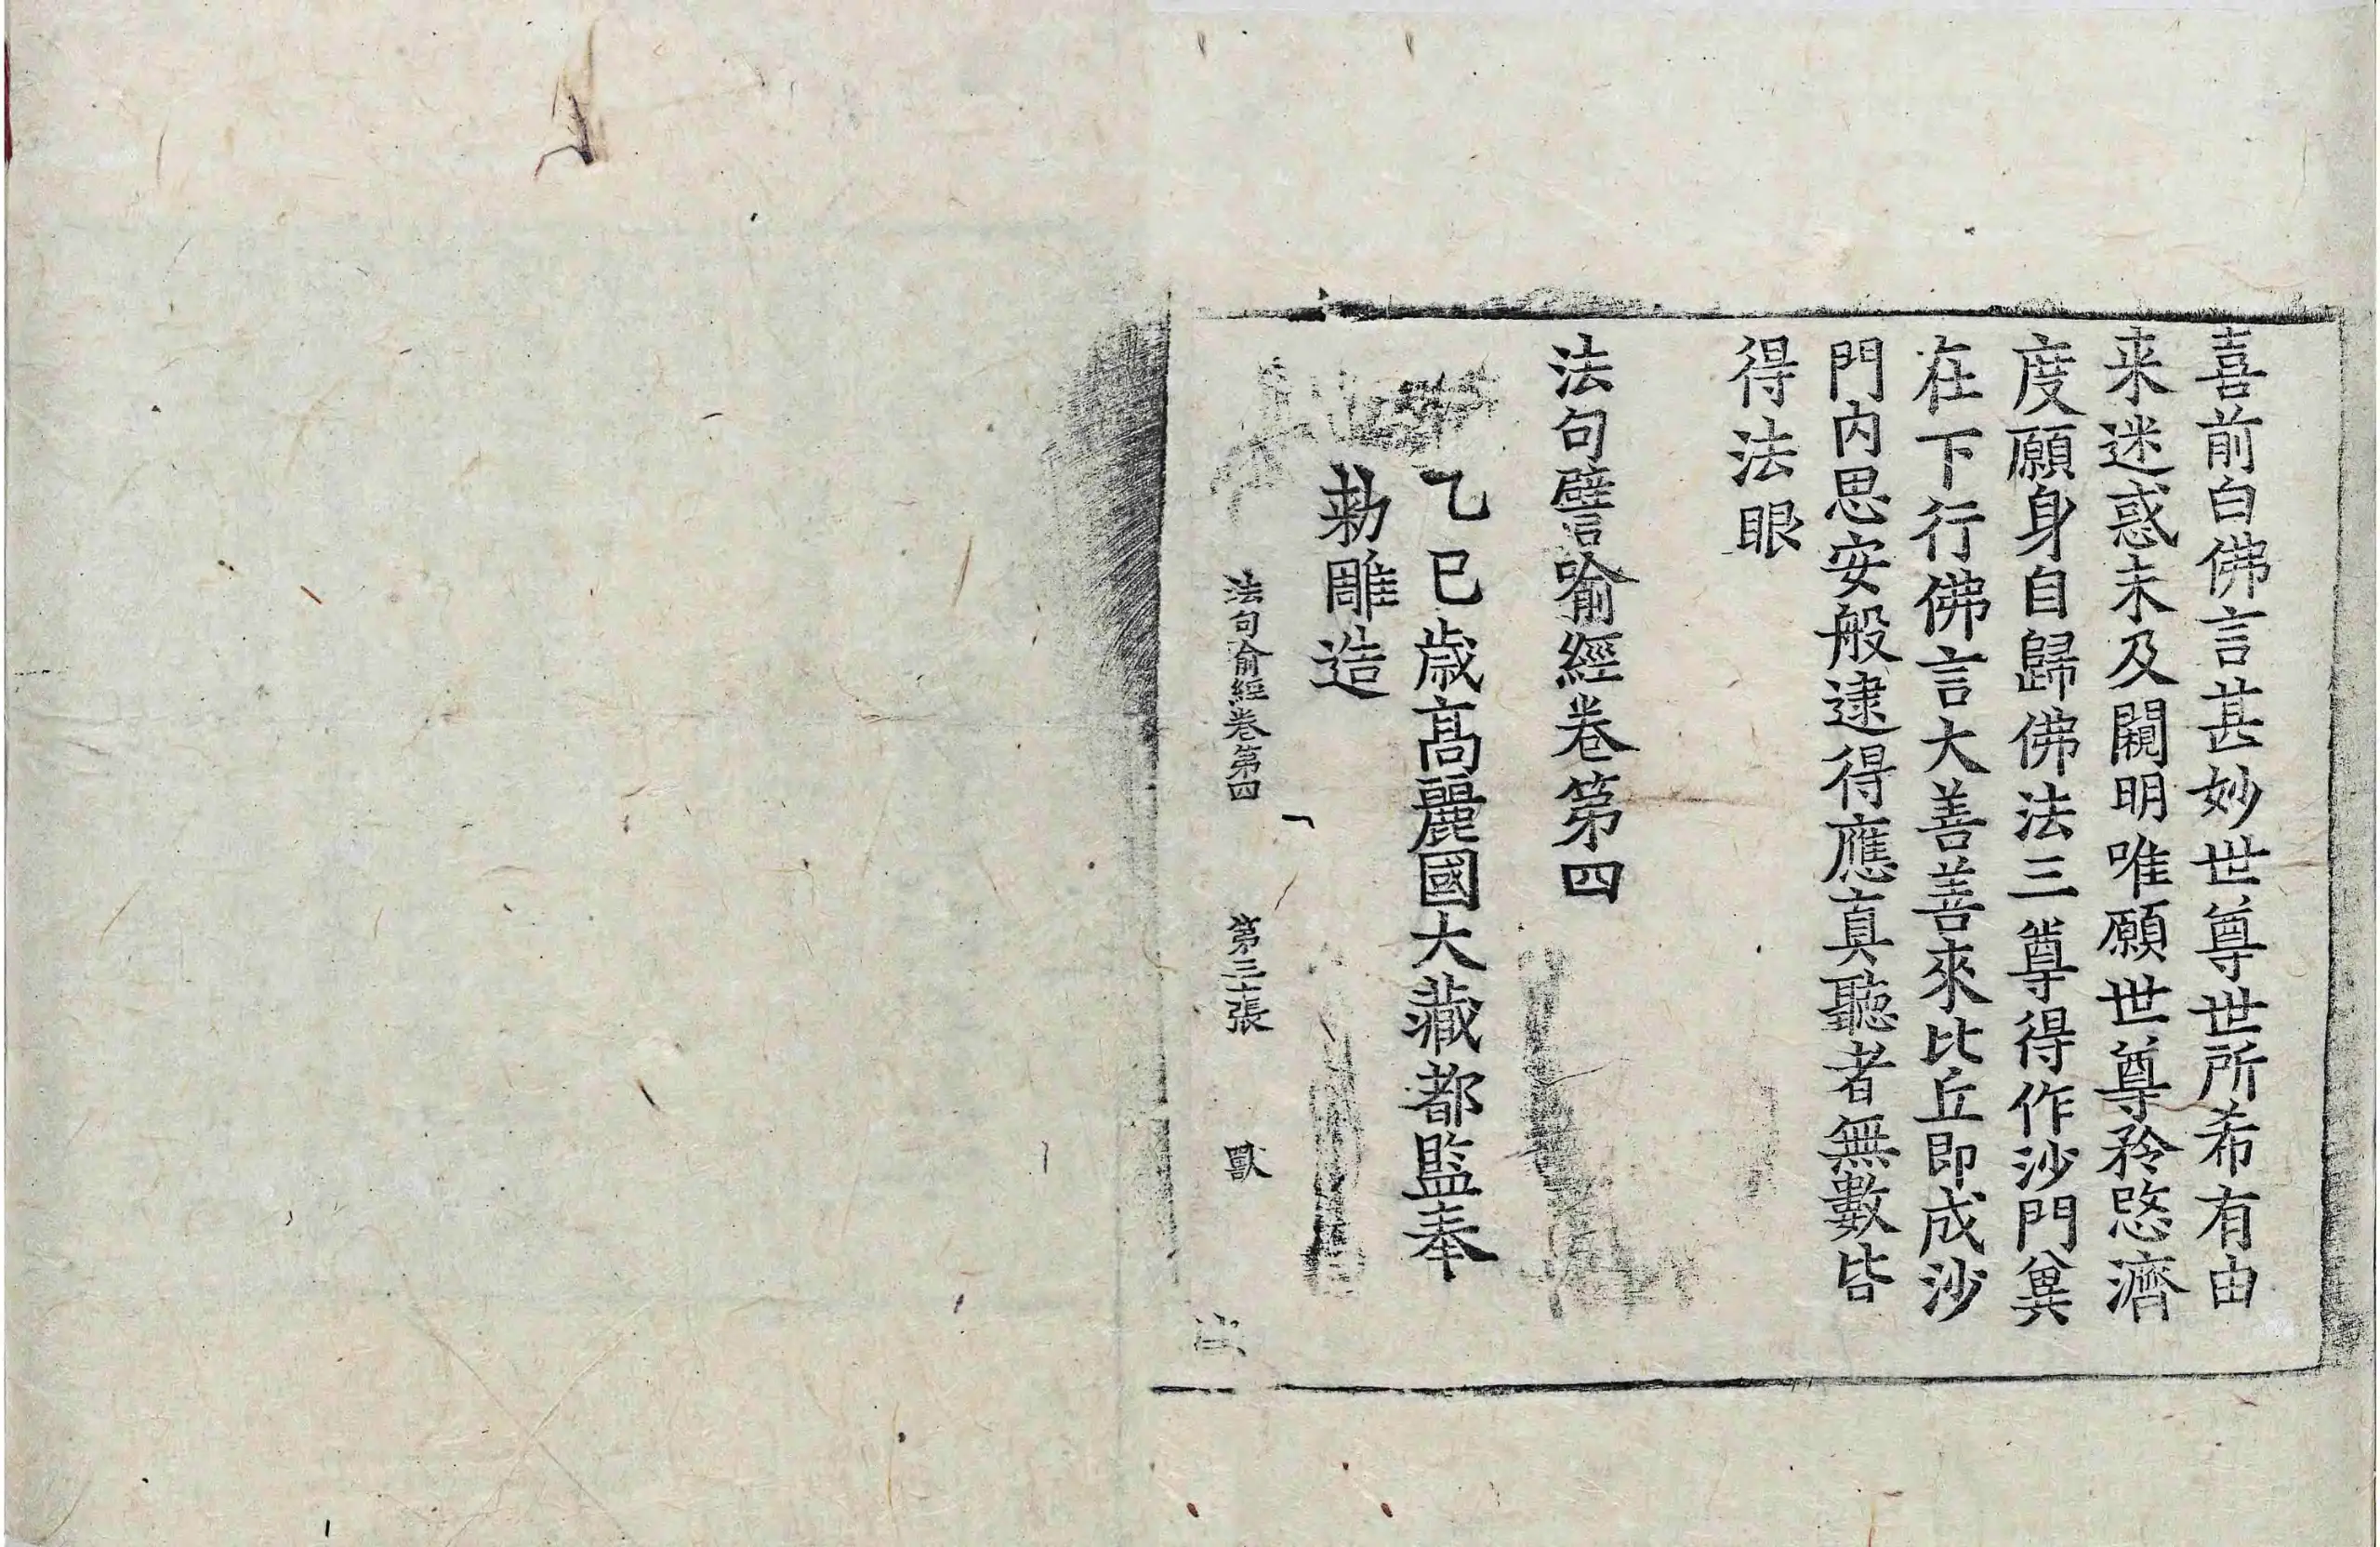 喜前白佛言甚妙世尊世所希有由
来迷惑未及闚明唯願世尊矜愍濟
度願身自歸佛法三尊得作沙門兾
在下行佛言大善善來比丘即成沙
門內思安般逮得應真聽者無數皆
得法眼
法句譬喻經卷第四
乙巳歲高麗國大藏都監奉
勅雕造
法句喻經卷第四 第三十張 獸